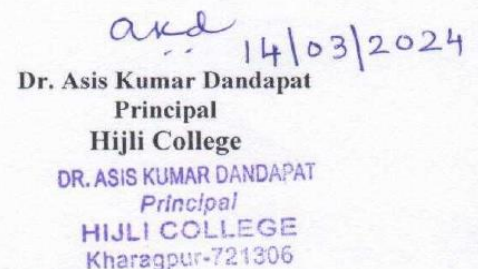 akd 14/03/2024
Dr. Asis Kumar Dandapat
Principal
Hijli College
DR. ASIS KUMAR DANDAPAT
Principal
HIJLI COLLEGE
Kharagpur-721306